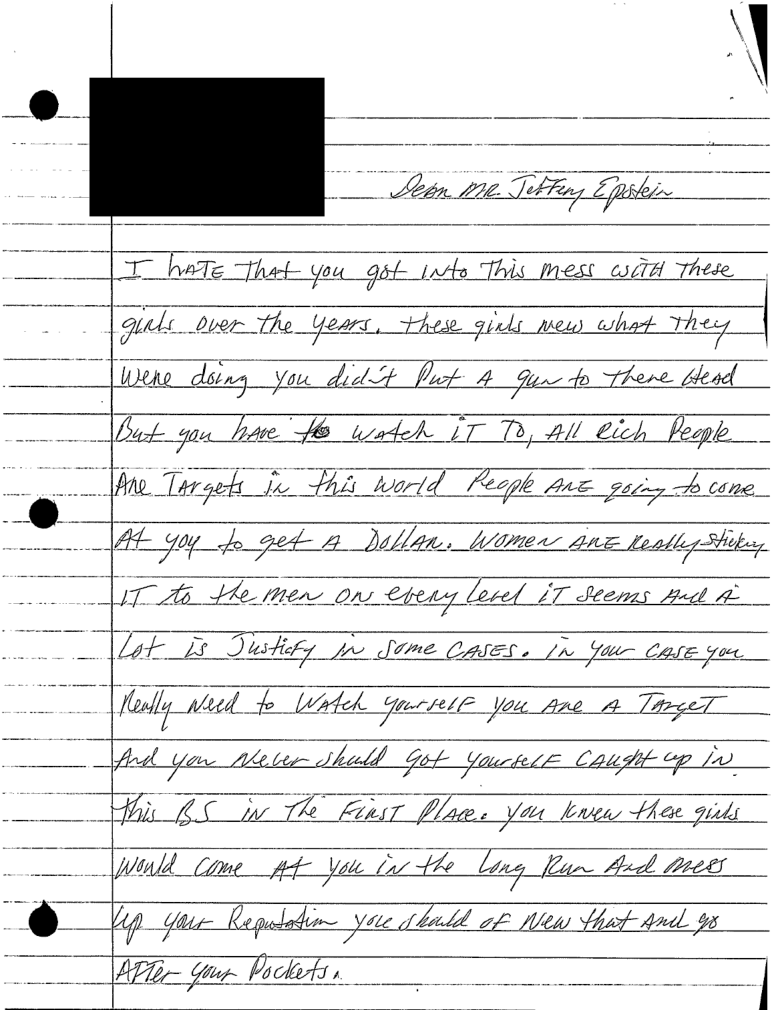 Dear MR. Jeffery Epstein
I hATE That you got into This mess WITH These
girls over the years. these girls new what They
were doing you did't Put A gun to there Head
But you have to watch iT To, All Rich People
Are Targets in this World People Are going to come
At yoy to get A Dollar. Women Are Really Sticking
IT to the men on every level iT seems And A
Lot is Justicfy in Some CASES. in your CASE you
Really Need to Watch yourself you Are A Target
And you Never should got yourself Caught up in
this BS in The First Place. you knew these girls
would come At you in the Long Run And mess
Up your Reputation you should of New that And go
AFTer your Pockets.